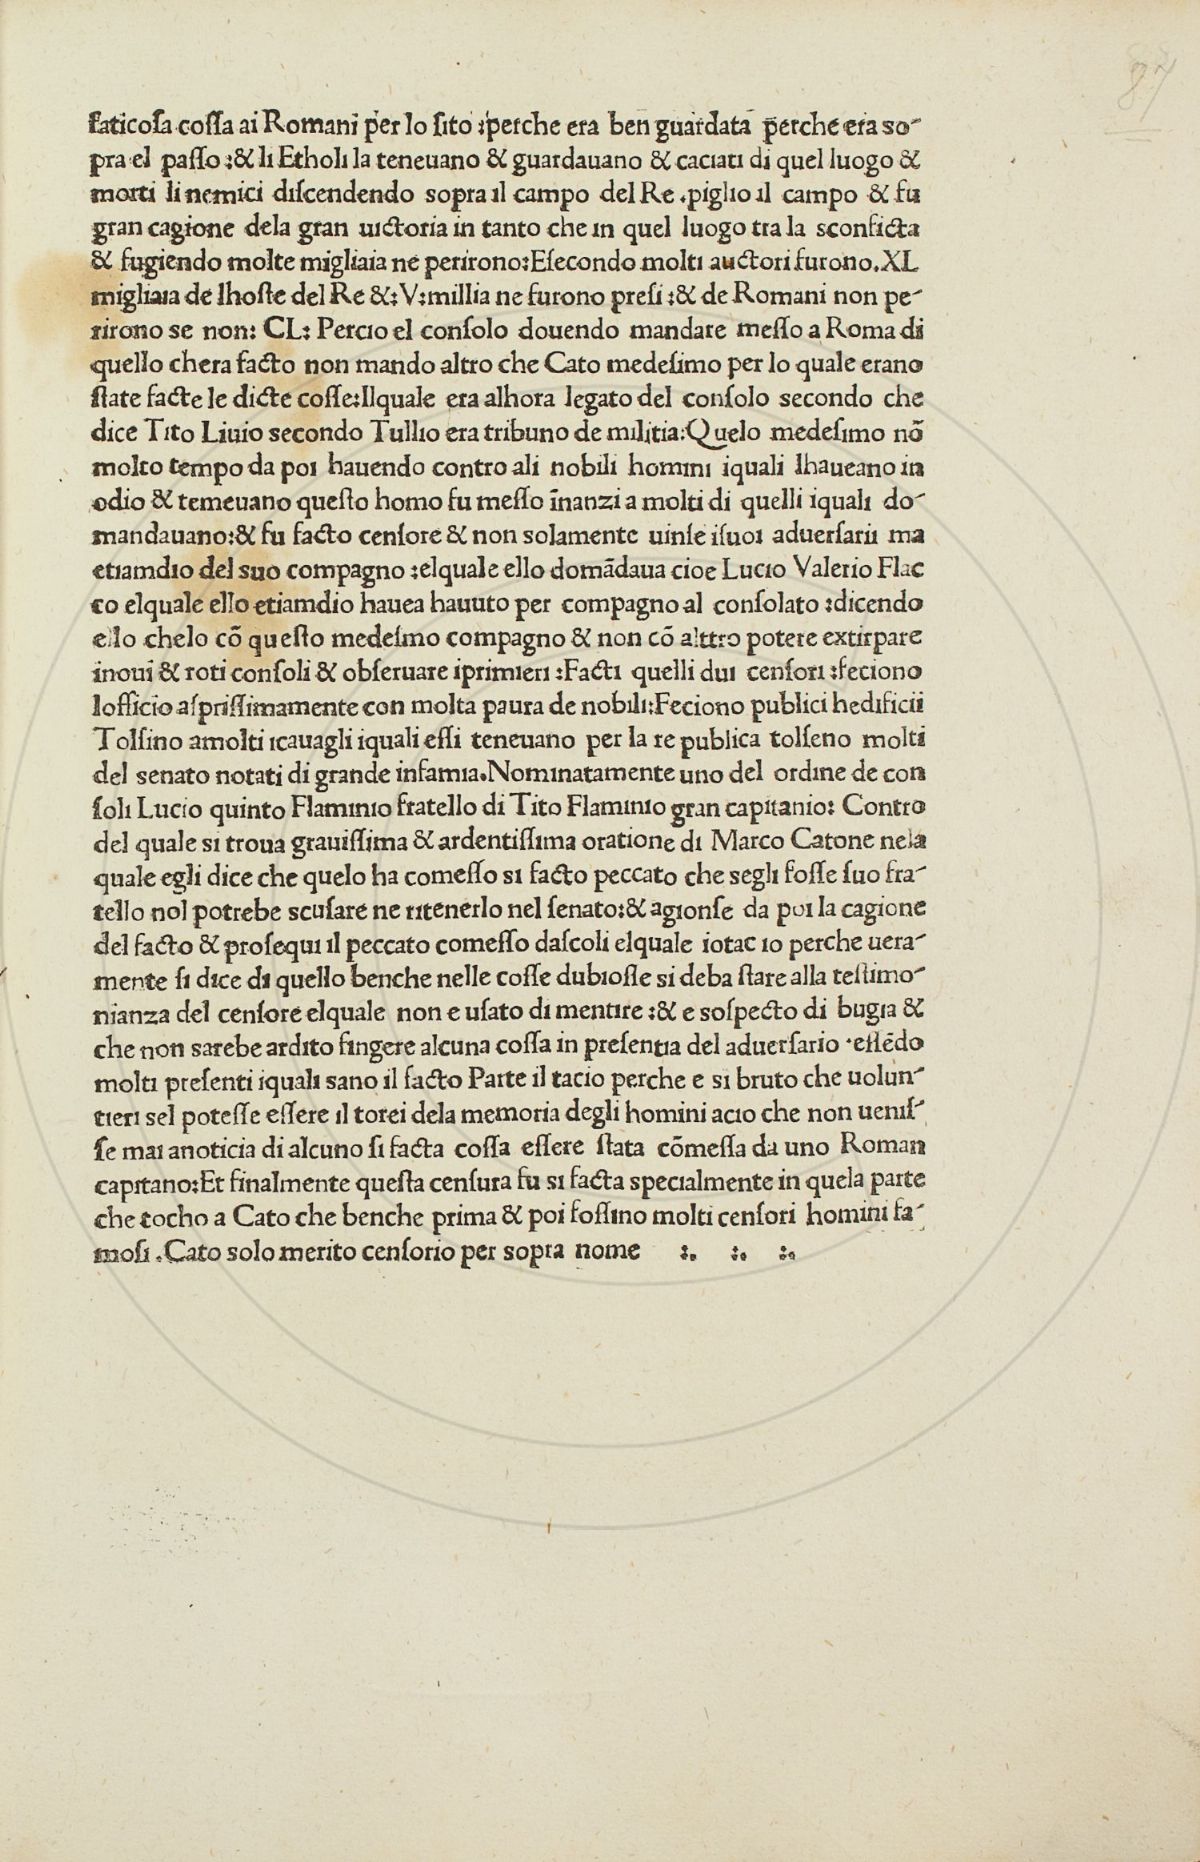 87
faticosa cossa ai Romani per lo sito :perche era ben guardata perche era so-
pra el passo :& li Etholi la tenevano & guardavano & caciati di quel luogo &
morti li nemici discendendo sopra il campo del Re .piglio il campo & fu
gran cagione dela gran uictoria in tanto che in quel luogo tra la sconficta
& fugiendo molte migliaia ne perirono:Esecondo molti auctori furono.XL
migliaia de lhoste del Re &:V:millia ne furono presi :& de Romani non pe-
rirono se non: CL: Percio el consolo douendo mandare messo a Roma di
quello chera facto non mando altro che Cato medesimo per lo quale erano
state facte le dicte cosse:Ilquale era alhora legato del consolo secondo che
dice Tito Liuio secondo Tullio era tribuno de militia:Quelo medesimo nō
molto tempo da poi hauendo contro ali nobili homini iquali lhaueano in
odio & temeuano questo homo fu messo īnanzi a molti di quelli iquali do-
mandauano:& fu facto censore & non solamente uinse isuoi aduersarii ma
etiamdio del suo compagno :elquale ello domādaua cioe Lucio Valerio Flac
co elquale ello etiamdio hauea hauuto per compagno al consolato :dicendo
ello chelo cō questo medesmo compagno & non cō alttro potere extirpare
inoui & roti consoli & obseruare iprimieri :Facti quelli dui censori :feciono
lofficio asprissimamente con molta paura de nobili:Feciono publici hedificii
Tolsino amolti icauagli iquali essi teneuano per la re publica tolseno molti
del senato notati di grande infamia.Nominatamente uno del ordine de con
soli Lucio quinto Flaminio fratello di Tito Flaminio gran capitanio: Contro
del quale si troua grauissima & ardentissima oratione di Marco Catone nela
quale egli dice che quelo ha comesso si facto peccato che segli fosse suo fra-
tello nol potrebe scusare ne ritenerlo nel senato:& agionse da poi la cagione
del facto & prosequi il peccato comesso dascoli elquale iotac io perche uera-
mente si dice di quello benche nelle cosse dubiosse si deba stare alla testimo-
nianza del censore elquale non e usato di mentire :& e sospecto di bugia &
che non sarebe ardito fingere alcuna cossa in presentia del aduersario .essēdo
molti presenti iquali sano il facto Parte il tacio perche e si bruto che uolun-
tieri sel potesse essere il torei dela memoria degli homini acio che non uenis-
se mai anoticia di alcuno si facta cossa essere stata cōmessa da uno Roman
capitano:Et finalmente questa censura fu si facta specialmente in quela parte
che tocho a Cato che benche prima & poi fossino molti censori homini fa-
mosi .Cato solo merito censorio per sopra nome :. :. :.